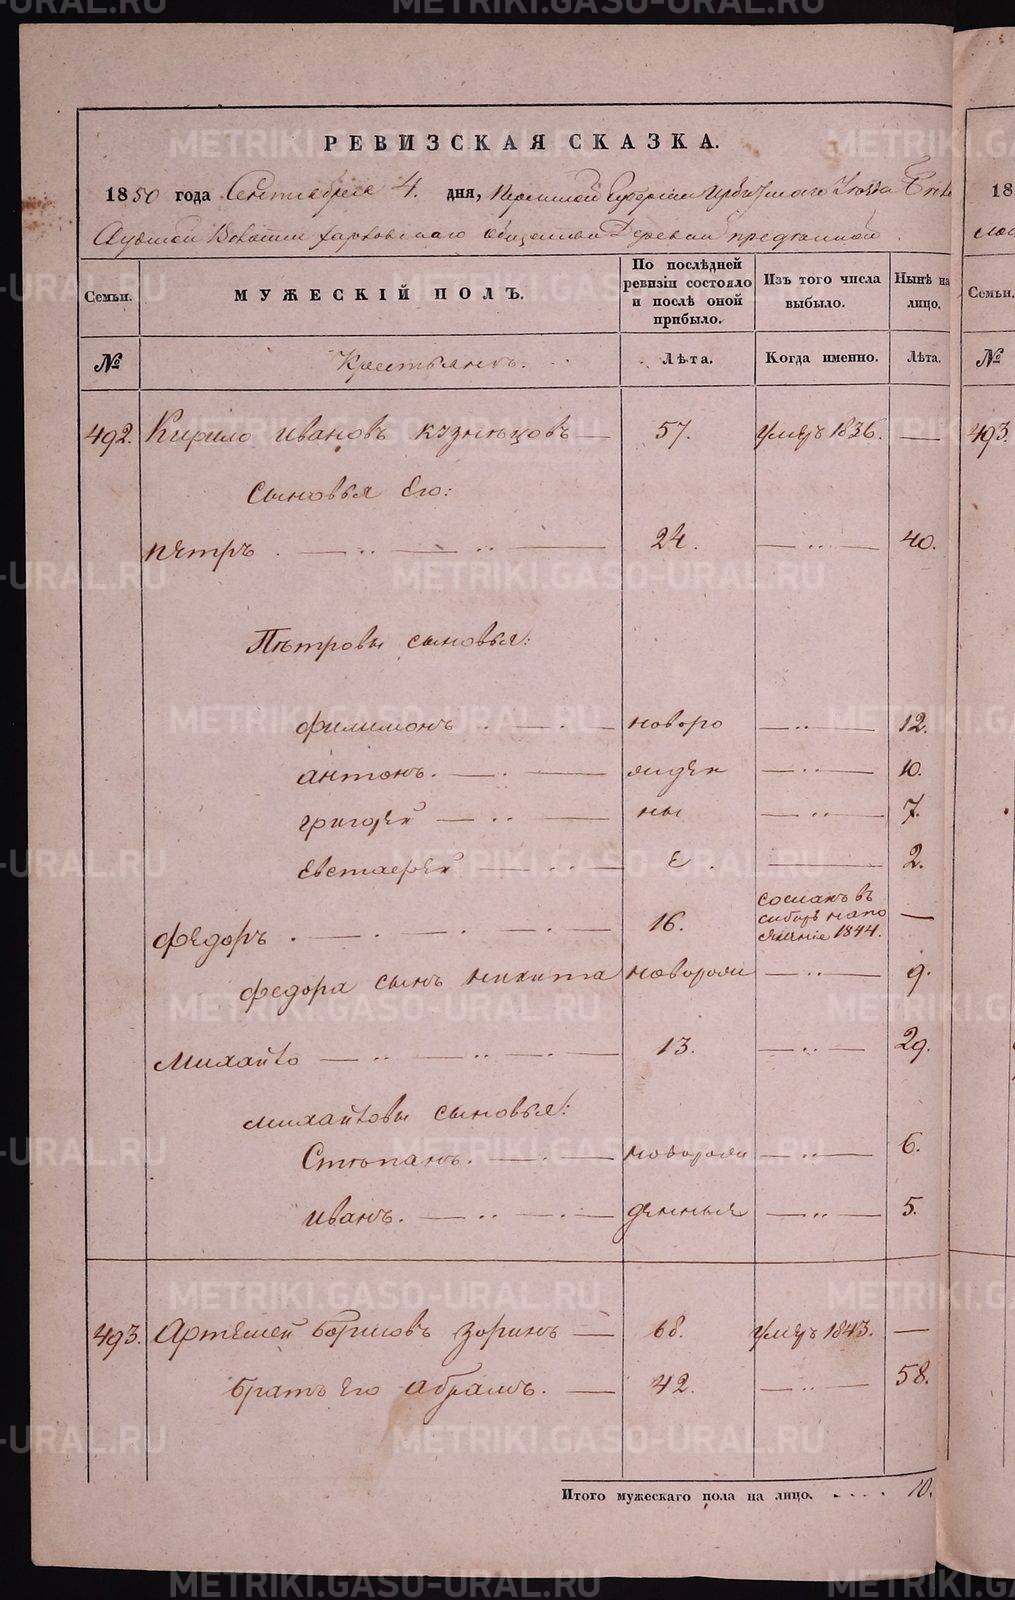 РЕВИЗСКАЯ СКАЗКА.
1850 года Сентября 4. дня, Пермской Губернии Ирбитскаго Уезда
Волости Харловскаго общества Деревни
Семьи. МУЖЕСКІЙ ПОЛЪ. По послѣдней ревизіи состояло и послѣ оной прибыло. Изъ того числа выбыло. Нынѣ на лицо.
№ Крестьянъ. Лѣта. Когда именно. Лѣта.
492. Кирило Ивановъ Кузнецовъ — 57. умеръ 1836. —
Сыновья Его:
Петръ 24. 40.
Петровы сыновья:
Филимонъ новоро 12.
Антонъ. жден 10.
Григорей ны 7.
Евстафей е 2.
Федоръ 16. сосланъ въ сибирь на посѣленіе 1844. —
Федора сынъ Никита новорож 9.
Михайло 13. 29.
Михайловы сыновья:
Степанъ. новорож 6.
Иванъ. денныя 5.
493. Артемей Борисовъ Зоринъ — 68. умеръ 1843. —
братъ Его Абрамъ. — 42. 58.
Итого мужескаго пола на лицо. 10.
Семьи.
№
493.
METRIKI.GASO-URAL.RU